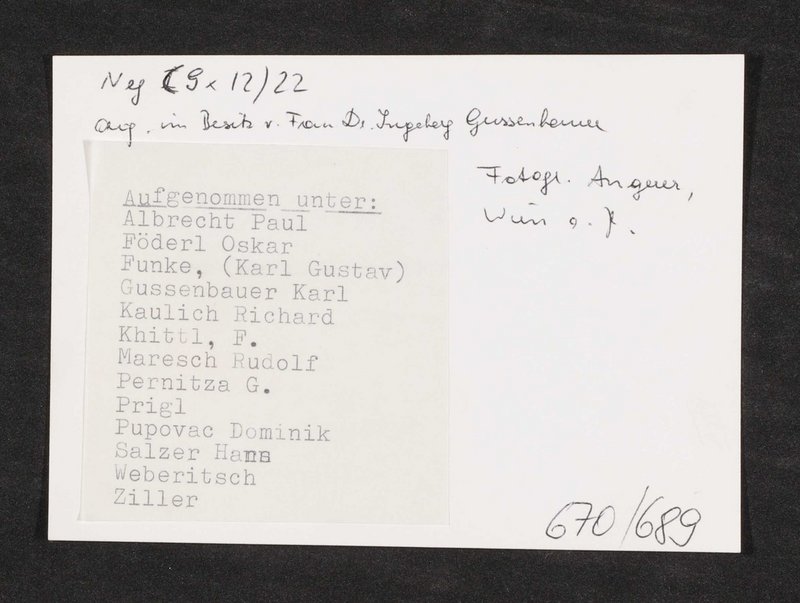 Neg (9 x 12) 22
Orig. im Besitz v. Frau Dr. Ingeberg Gussenbauer
Fotogr. Angerer,
Wien o. J.
Aufgenommen unter:
Albrecht Paul
Föderl Oskar
Funke, (Karl Gustav)
Gussenbauer Karl
Kaulich Richard
Khittl, F.
Maresch Rudolf
Pernitza G.
Prigl
Pupovac Dominik
Salzer Hans
Weberitsch
Ziller
670/689